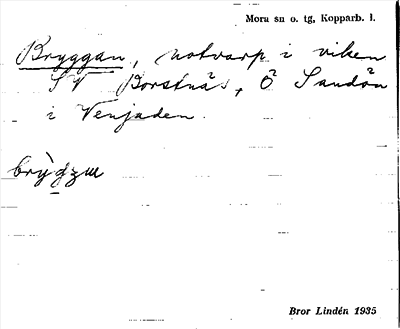 Mora sn o. tg, Kopparb. l.
Bryggan, notvarp i viken
SV Borstnäs, Ö Sandön
i Venjaden.
Bror Lindén 1935